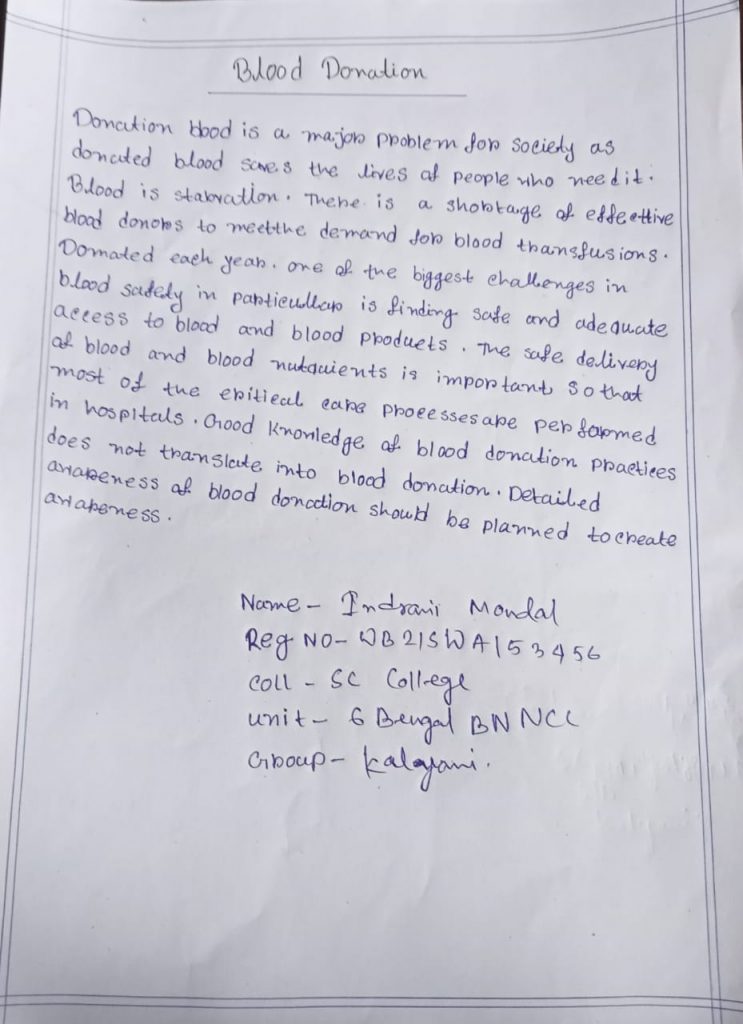 Blood Donation
Donation blood is a major problem for society as
donated blood saves the lives of people who need it.
Blood is starvation. There is a shortage of effective
blood donors to meet the demand for blood transfusions.
Donated each year. one of the biggest challenges in
blood safety in particullar is finding safe and adequate
access to blood and blood products. The safe delivery
of blood and blood nutquients is important so that
most of the critical care processes are performed
in hospitals. Good knowledge of blood donation practices
does not translate into blood donation. Detailed
awareness of blood donation should be planned to create
awareness.
Name - Indrani Mondal
Reg NO- WB21SWA153456
coll - SC College
unit - 6 Bengal BN NCC
Group - Kalayani.